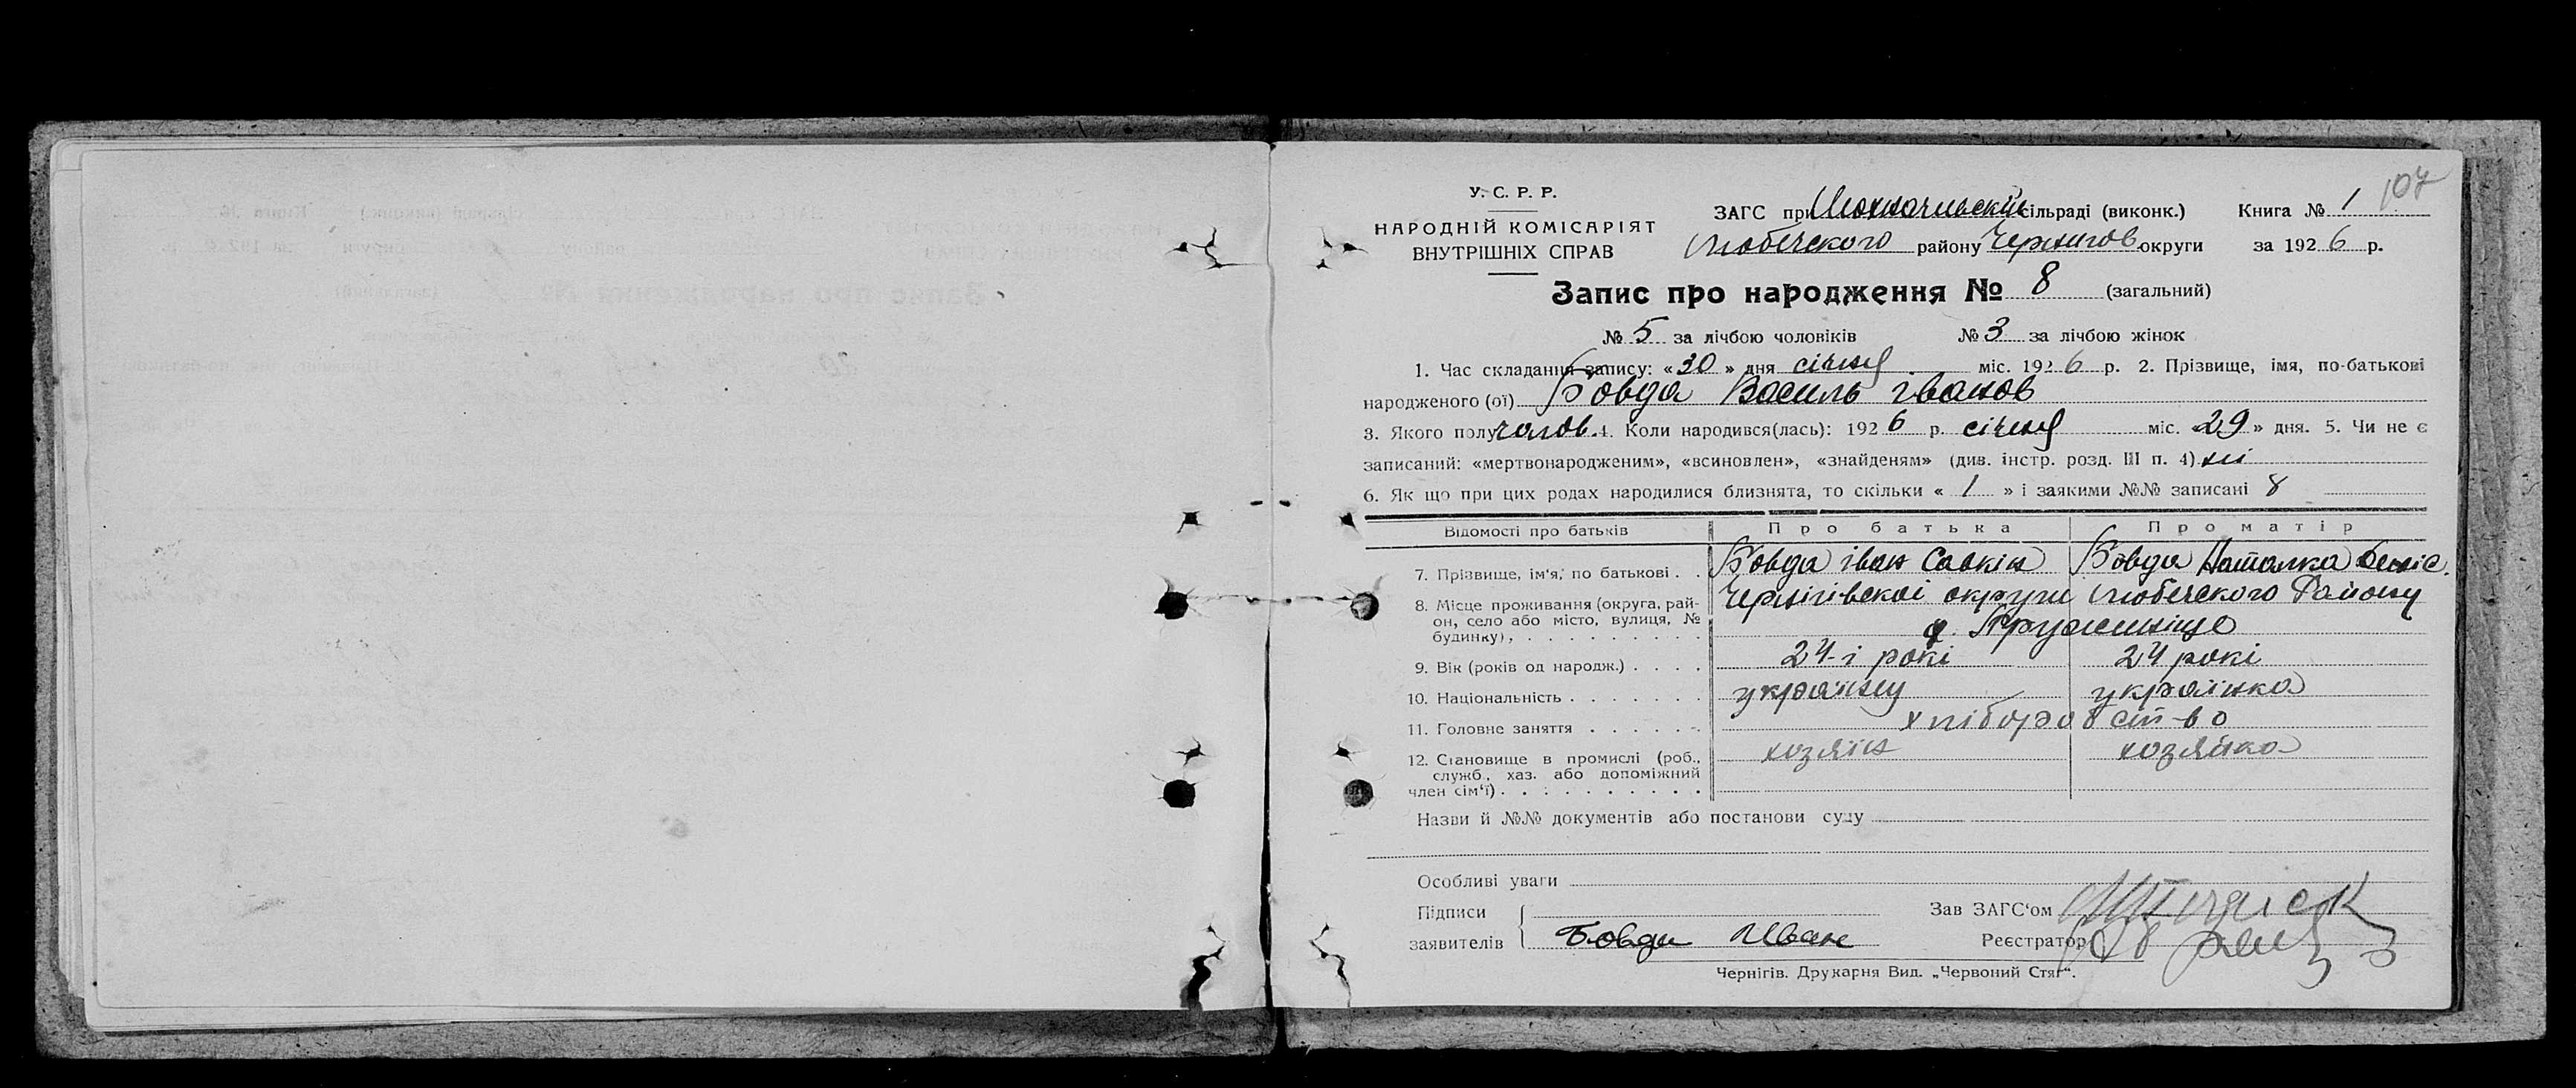 107
У. С. Р. Р.
НАРОДНІЙ КОМІСАРІЯТ
ВНУТРІШНІХ СПРАВ
ЗАГС при сільраді (виконк.) Книга № 1
Любечского району Чернигов округи за 1926 р.
Запис про народження № 8 (загальний)
№ 5 за лічбою чоловіків № 3 за лічбою жінок
1. Час складання запису: «30» дня січня міс. 1926 р. 2. Прізвище, імя, по-батькові
народженого (ої) Бовда Василь іванов
3. Якого полу чолов. 4. Коли народився(лась): 1926 р. січня міс. «29» дня. 5. Чи не є
записаний: «мертвонародженим», «всиновлен», «знайденям» (див. інстр. розд. III п. 4) ні
6. Як що при цих родах народилися близнята, то скільки « 1 » і заякими №№ записані 8
Відомості про батьків Про батька Про матір
7. Прізвище, ім'я, по батькові . . Бовда іван Савкін Бовда Наталка Деніс.
8. Місце проживання (округа, рай- Чернігівскоі округи Любечского Району
он, село або місто, вулиця, №
будинку), . . . . . . . . . . Пружиніще
9. Вік (років од народж.) . . . . 24-і рокі 24 рокі
10. Національність . . . . . . . українец українка
11. Головне заняття . . . . . . хліборобст-во
12. Становище в промислі (роб., хозяін хозяйка
служб., хаз. або допоміжний
член сім'ї) . . . . . . . . . .
Назви й №№ документів або постанови суду
Особливі уваги
Підписи
заявителів Бовда Иван
Зав ЗАГС'ом
Реєстратор
Чернігів. Друкарня Вид. „Червоний Стяг“.